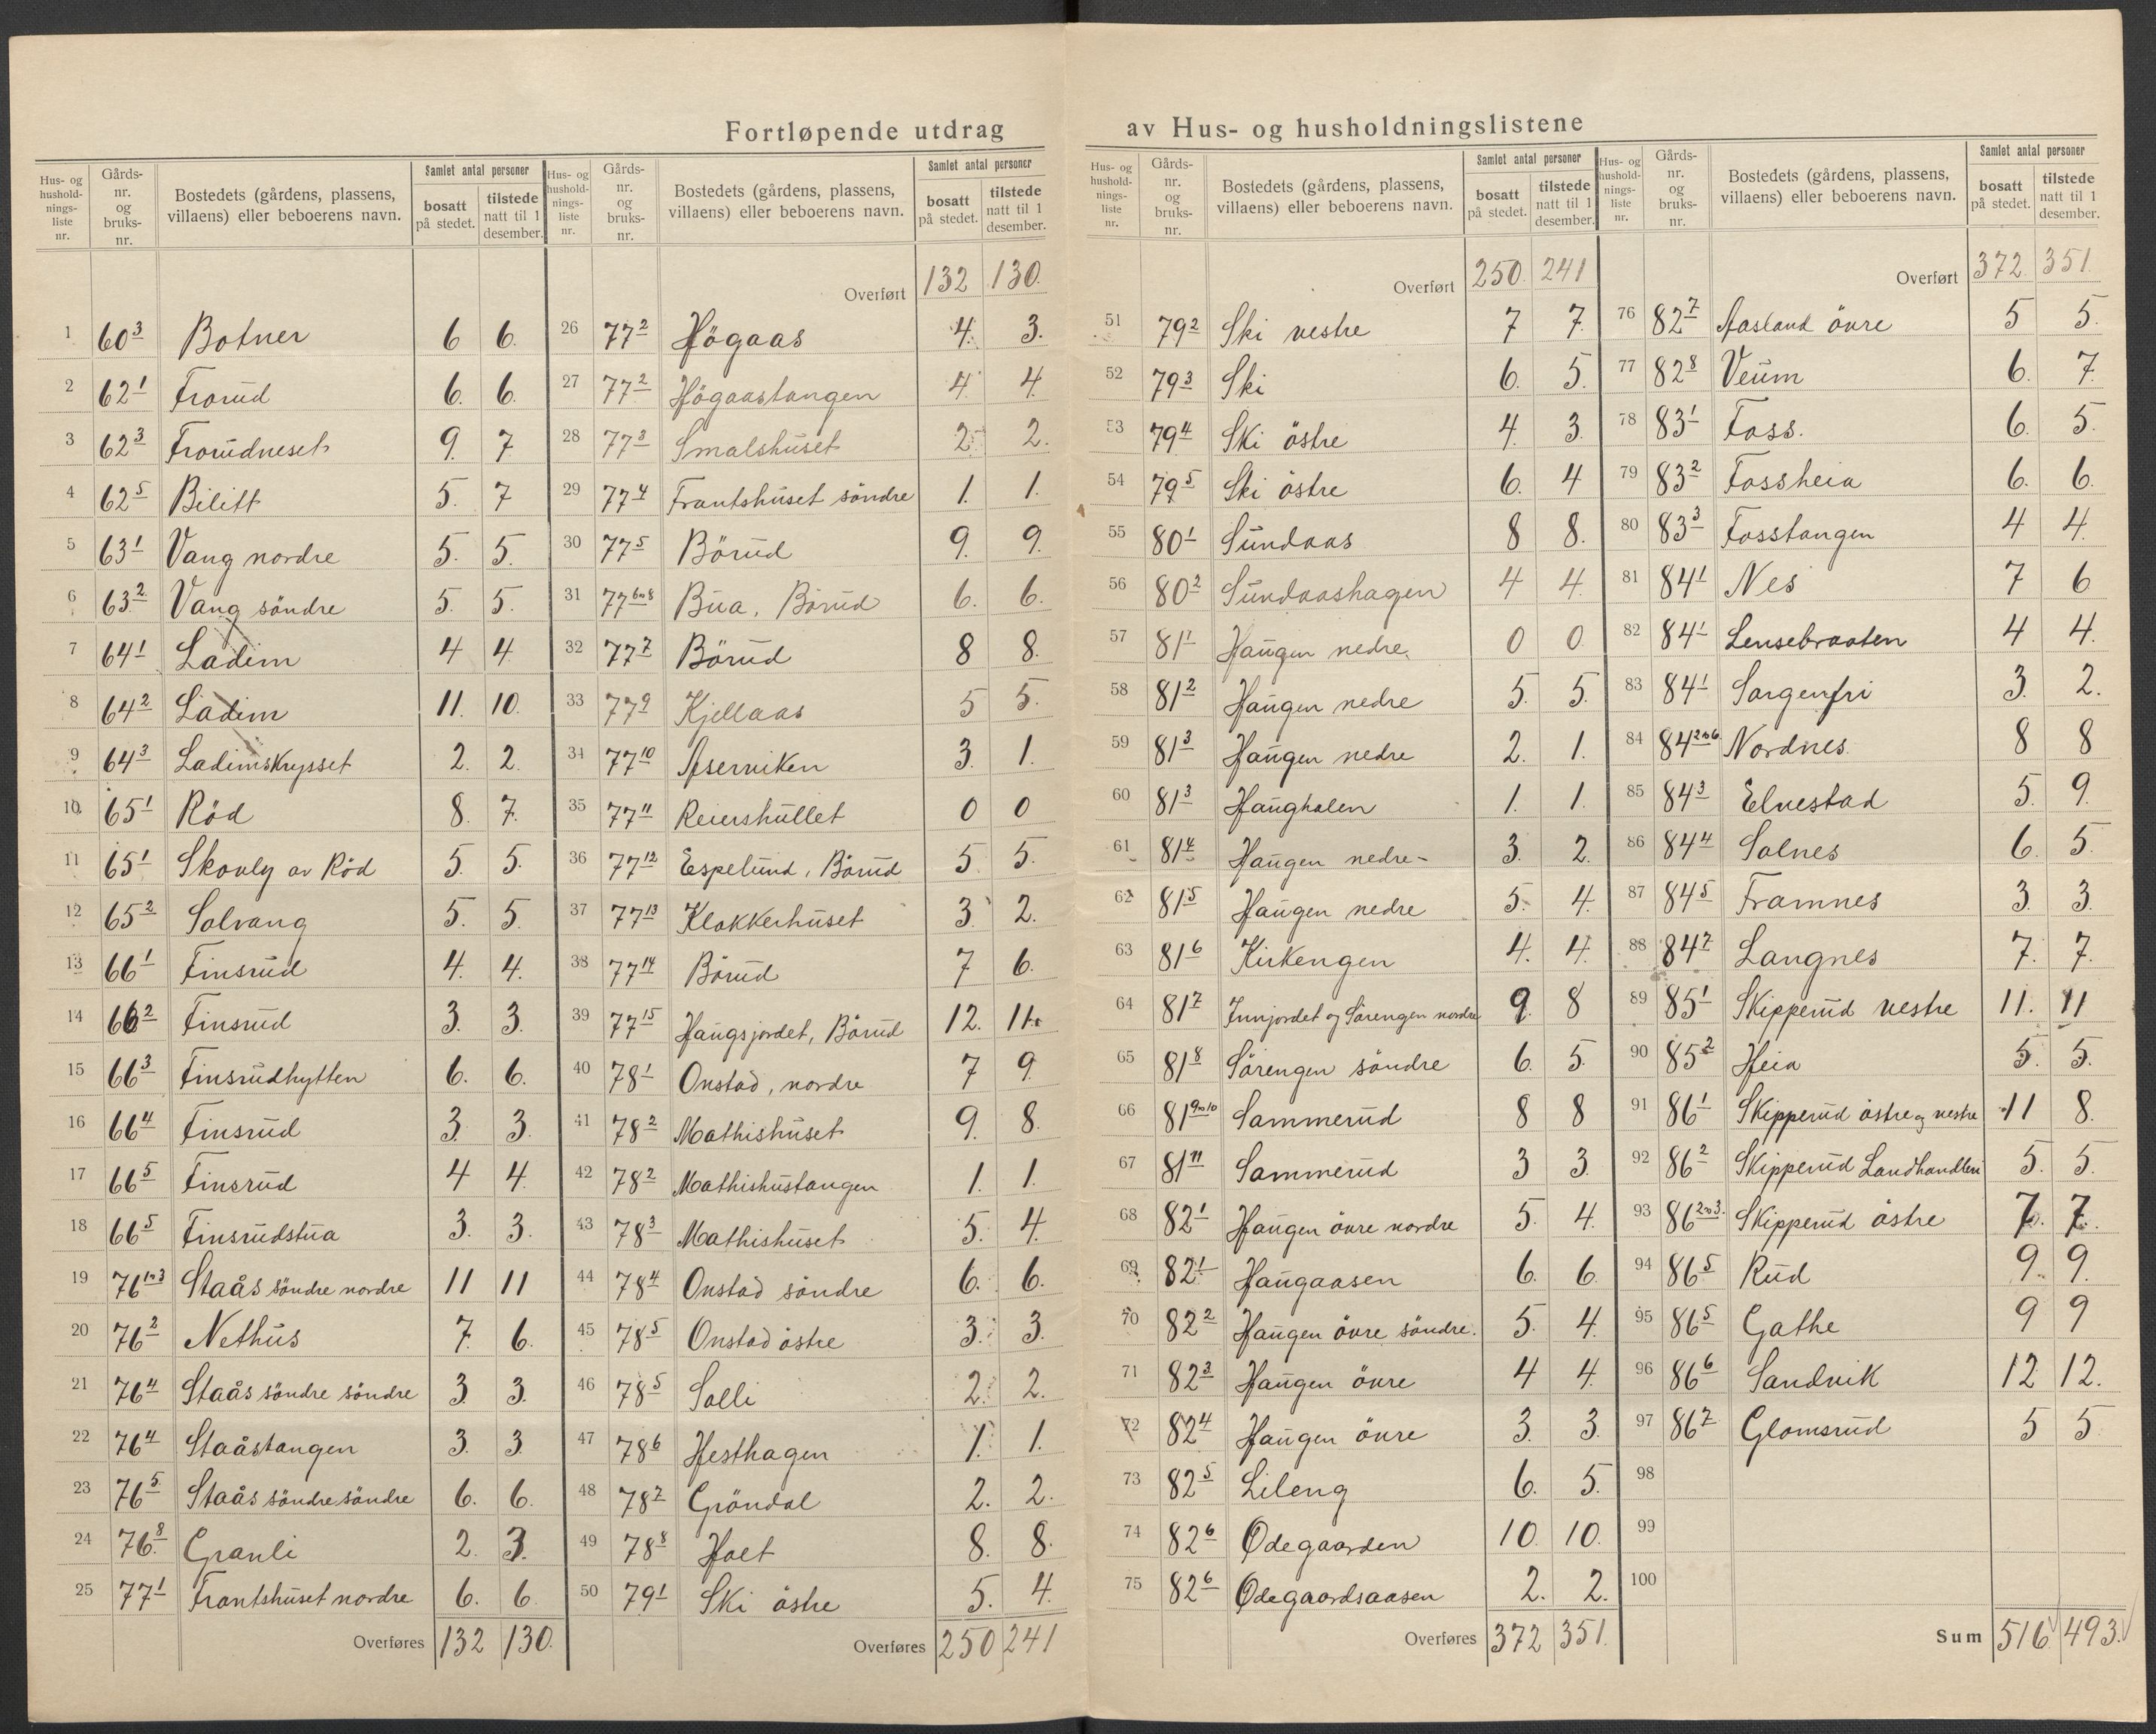 Fortløpende utdrag
Hus- og hushold-nings-liste nr. | Gårds-nr. og bruks-nr. | Bostedets (gårdens, plassens, villaens) eller beboerens navn. | Samlet antal personer | bosatt på stedet. | tilstede natt til 1 desember.
1 60³ Botner 6 6.
2 62¹ Frorud 6. 6.
3 62³ Frorudneset 9. 7
4 62⁵ Bilitt 5. 7
5 63¹ Vang nordre 5. 5.
6 63² Vang söndre 5. 5.
7 64¹ Ladim 4 4
8 64² Ladim 11. 10.
9 64³ Ladimskrysset 2. 2.
10 65¹ Röd 8. 7.
11 65¹ Skovly av Röd 5. 5.
12 65² Solvang 5. 5.
13 66¹ Finsrud 4. 4.
14 66² Finsrud 3. 3.
15 66³ Finsrudhytten 6. 6.
16 66⁴ Finsrud 3. 3.
17 66⁵ Finsrud 4 4.
18 66⁵ Finsrudstua 3. 3.
19 76¹ᵒ³ Staås söndre nordre 11 11
20 76² Nethus 7. 6.
21 76⁴ Staås söndre söndre 3 3.
22 76⁴ Staåstangen 3. 3
23 76⁵ Staås söndre söndre 6. 6.
24 76⁸ Granli 2. 3.
25 77¹ Frantshuset nordre 6. 6
Overføres 132 130.
Hus- og hushold-nings-liste nr. | Gårds-nr. og bruks-nr. | Bostedets (gårdens, plassens, villaens) eller beboerens navn. | Samlet antal personer | bosatt på stedet. | tilstede natt til 1 desember.
Overført 132 130.
26 77² Högaas 4. 3.
27 77² Högaastangen 4 4.
28 77³ Smalshuset 2. 2.
29 77⁴ Frantshuset söndre 1. 1.
30 77⁵ Börud 9. 9.
31 77⁶ᵒ⁸ Bua, Börud 6. 6.
32 77⁷ Börud 8 8.
33 77⁹ Kjellaas 5 5.
34 77¹⁰ Aserviken 3. 1.
35 77¹¹ Reiershullet 0 0
36 77¹² Espelund, Börud 5 5.
37 77¹³ Klokkerhuset 3. 2.
38 77¹⁴ Börud 7 6.
39 77¹⁵ Haugsjordet, Börud 12. 11.
40 78¹ Onstad, nordre 7 9.
41 78² Mathishuset 9. 8.
42 78² Mathishustangen 1. 1.
43 78³ Mathishuset 5. 4.
44 78⁴ Onstad söndre 6. 6.
45 78⁵ Onstad östre 3. 3.
46 78⁵ Solli 2. 2.
47 78⁶ Hesthagen 1. 1.
48 78⁷ Gröndal 2. 2.
49 78⁸ Holt 8. 8.
50 79¹ Ski östre 5. 4.
Overføres 250 241
av Hus- og husholdningslistene
Hus- og hushold-nings-liste nr. | Gårds-nr. og bruks-nr. | Bostedets (gårdens, plassens, villaens) eller beboerens navn. | Samlet antal personer | bosatt på stedet. | tilstede natt til 1 desember.
Overført 250 241
51 79² Ski vestre 7 7.
52 79³ Ski 6. 5.
53 79⁴ Ski östre 4. 3.
54 79⁵ Ski östre 6. 4
55 80¹ Sundaas 8 8.
56 80² Sundaashagen 4 4.
57 81¹ Haugen nedre. 0 0
58 81² Haugen nedre 5. 5.
59 81³ Haugen nedre 2. 1.
60 81³ Haugholen 1. 1.
61 81⁴ Haugen nedre- 3. 2.
62 81⁵ Haugen nedre 5. 4.
63 81⁶ Kirkengen 4. 4.
64 81⁷ Innjordet og Sörengen nordre 9. 8
65 81⁸ Sörengen söndre 6. 5.
66 81⁹ᵒ¹⁰ Sammerud 8 8
67 81¹¹ Sammerud 3 3.
68 82¹ Haugen övre nordre 5. 4.
69 82¹ Haugaasen 6. 6.
70 82² Haugen övre söndre. 5. 4.
71 82³ Haugen övre 4 4.
72 82⁴ Haugen övre 3. 3.
73 82⁵ Lileng 6. 5.
74 82⁶ Ødegaarden 10. 10.
75 82⁶ Ødegaardsaasen 2. 2.
Overføres 372 351.
Hus- og hushold-nings-liste nr. | Gårds-nr. og bruks-nr. | Bostedets (gårdens, plassens, villaens) eller beboerens navn. | Samlet antal personer | bosatt på stedet. | tilstede natt til 1 desember.
Overført 372. 351.
76 82⁷ Aasland övre 5 5.
77 82⁸ Veum 6. 7.
78 83¹ Foss. 6. 5.
79 83² Fossheia 6. 6.
80 83³ Fosstangen 4 4.
81 84¹ Nes 7 6
82 84¹ Lensebraaten 4 4.
83 84¹ Sorgenfri 3. 2.
84 84²ᵒ⁶ Nordnes. 8 8
85 84³ Elvestad 5. 9.
86 84⁴ Solnes 6. 5.
87 84⁵ Framnes 3. 3.
88 84⁷ Langnes 7. 7.
89 85¹ Skipperud vestre 11. 11
90 85² Heia 5. 5.
91 86¹ Skipperud östre og vestre 11 8.
92 86² Skipperud Landhandleri 5. 5.
93 86²ᵒ³. Skipperud östre 7. 7.
94 86⁵ Rud 9. 9.
95 86⁵ Gathe 9 9
96 86⁶ Sandvik 12 12.
97 86⁷ Glomsrud 5 5
98
99
100
Sum 516 493.